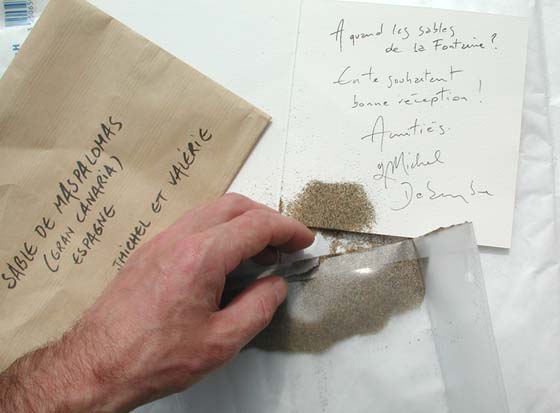 SABLE DE MASPALOMAS
(GRAN CANARIA)
ESPAGNE
MICHEL ET VALÉRIE
A quand les sables
de la Fontaine?
En te souhaitant
bonne réception!
Amitiés.
Michel